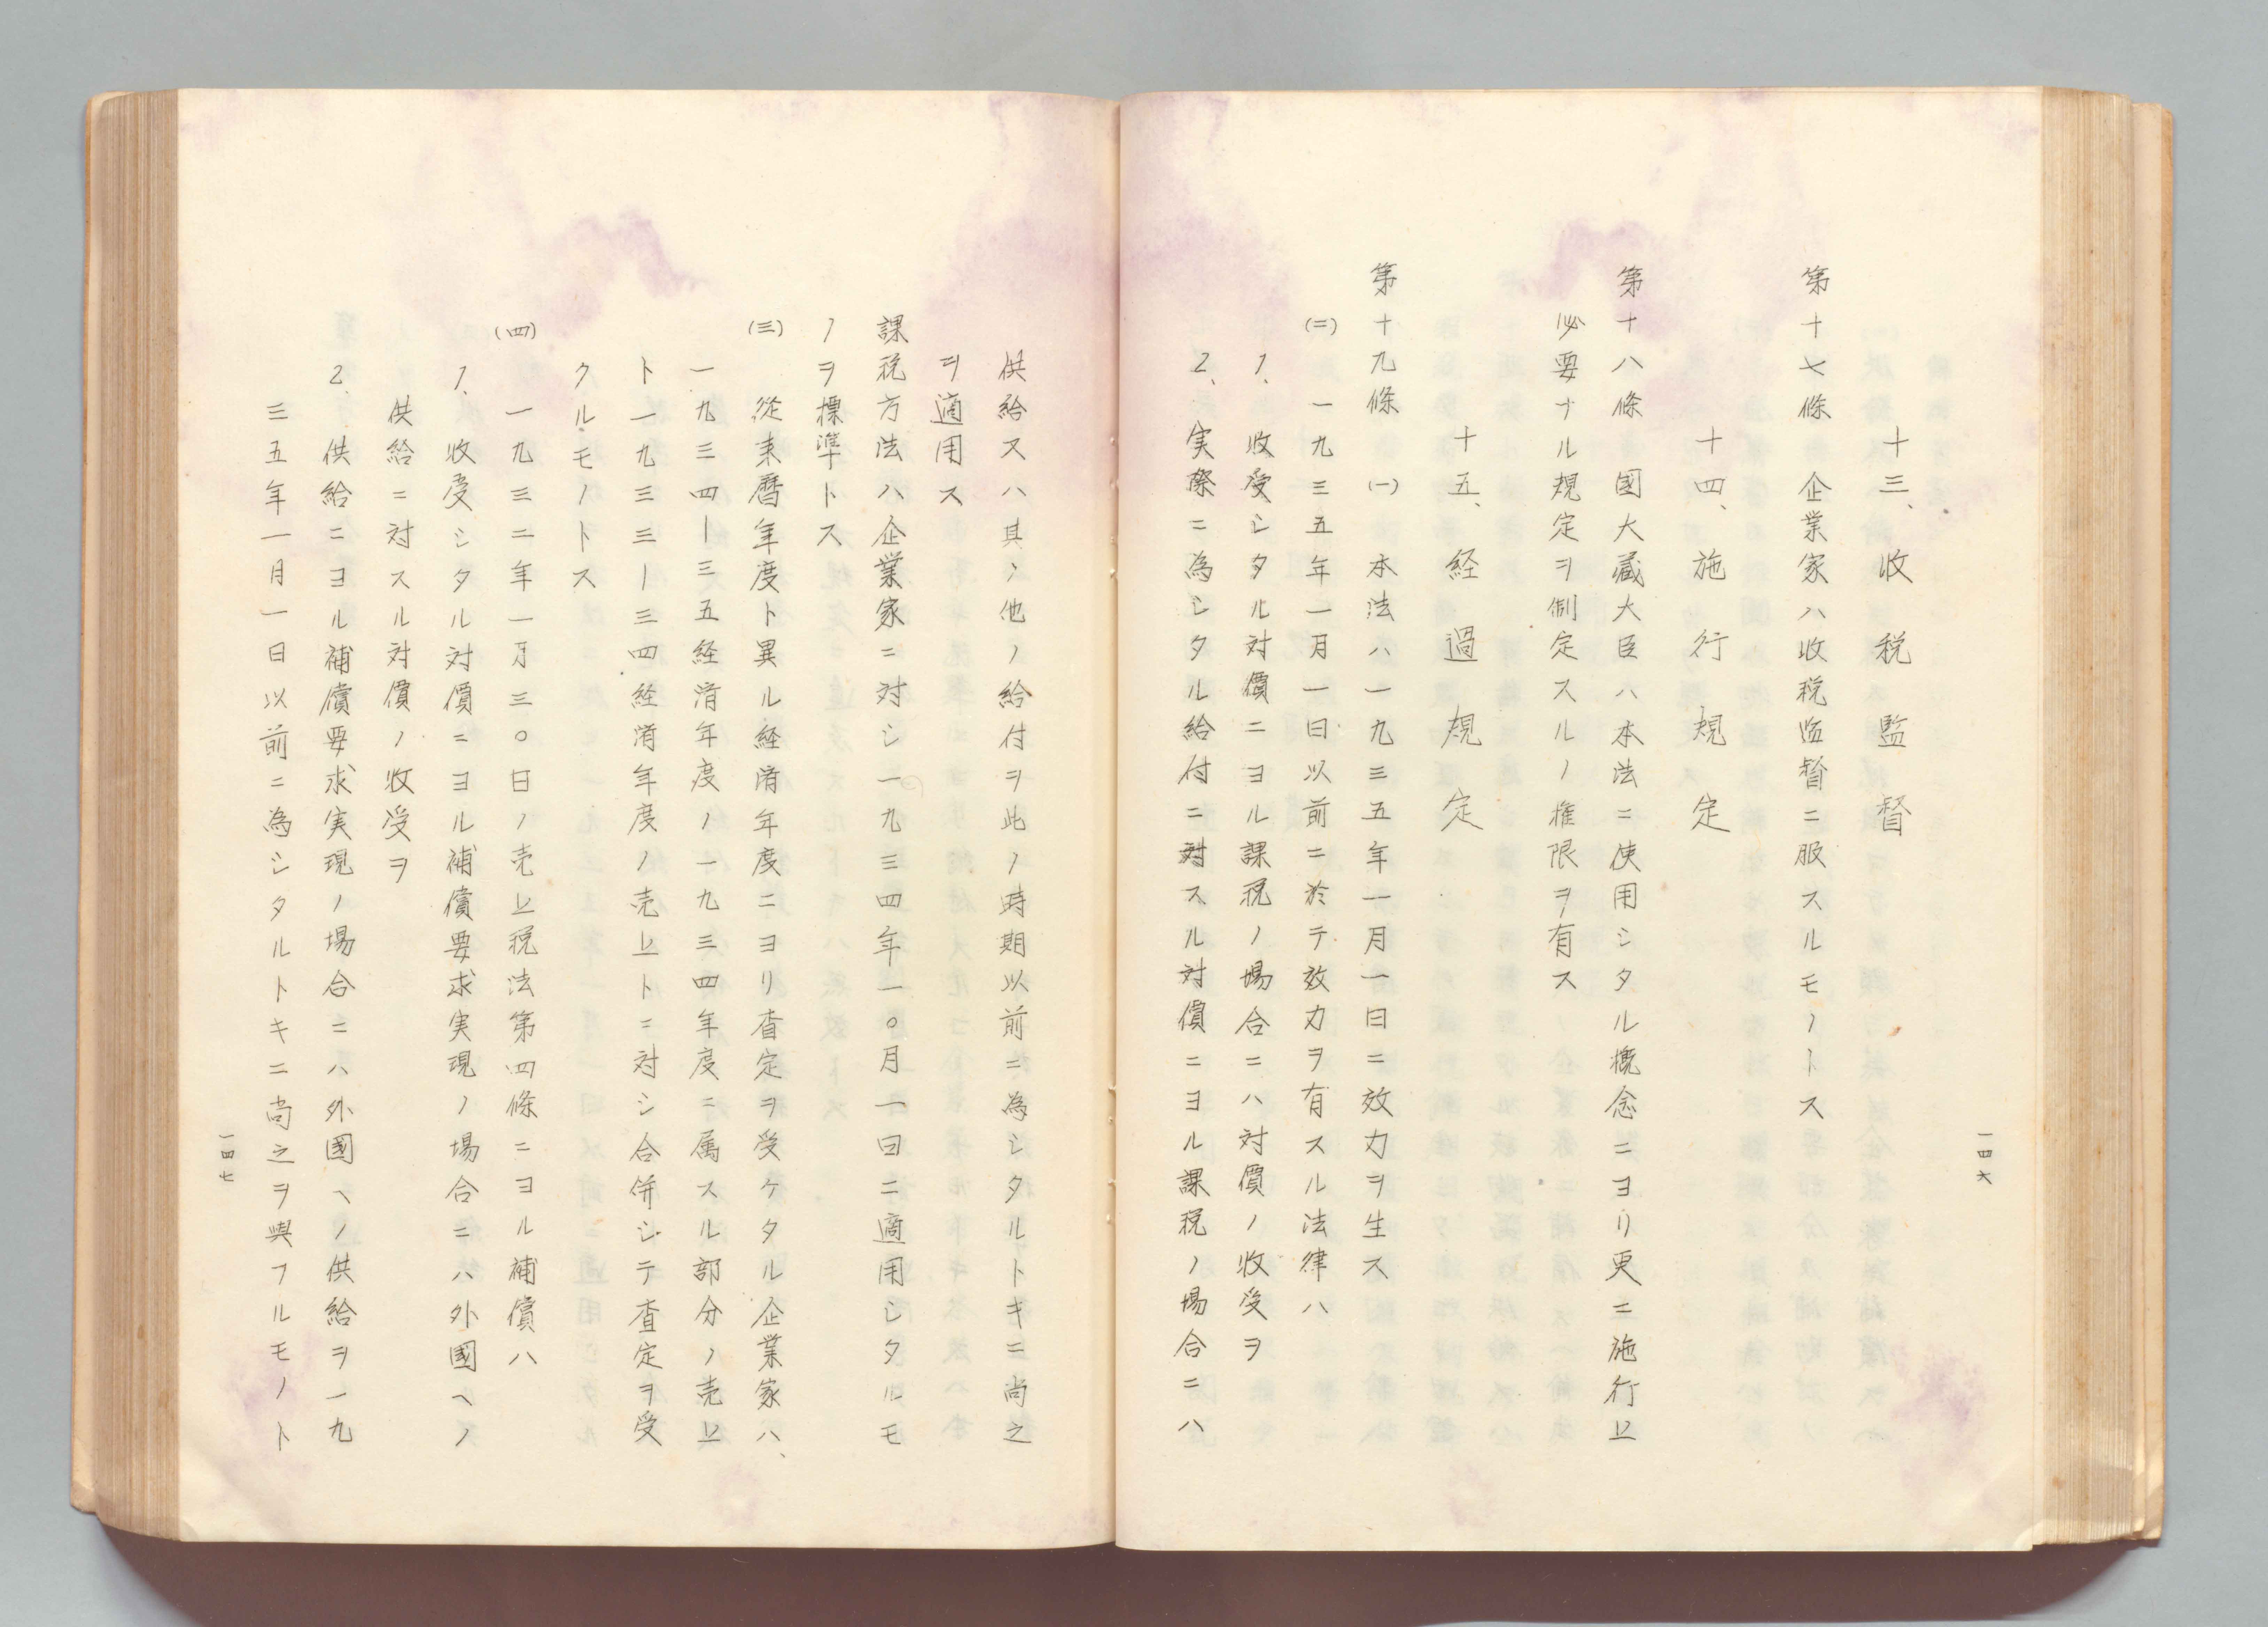 十三、收税監督
第十七條　企業家ハ收税監督ニ服スルモノトス
十四、施行規定
第十八條　國大藏大臣ハ本法ニ使用シタル概念ニヨリ更ニ施行上
必要ナル規定ヲ制定スルノ権限ヲ有ス
十五、経過規定
第十九條　(一)　本法ハ一九三五年一月一日ニ效力ヲ生ス
(二)　一九三五年一月一日以前ニ於テ效力ヲ有スル法律ハ
1、收受シタル対價ニヨル課税ノ場合ニハ対價ノ收受ヲ
2、実際ニ為シタル給付ニ対スル対價ニヨル課税ノ場合ニハ
一四六
供給又ハ其ノ他ノ給付ヲ此ノ時期以前ニ為シタルトキニ尚之
ヲ適用ス
課税方法ハ企業家ニ対シ一九三四年一〇月一日ニ適用シタルモ
ノヲ標準トス
(三)　從来暦年度ト異ル経済年度ニヨリ査定ヲ受ケタル企業家ハ、
一九三四―三五経済年度ノ一九三四年度ニ属スル部分ノ売上
ト一九三三―三四経済年度ノ売上トニ対シ合併シテ査定ヲ受
クルモノトス
(四)　一九三二年一月三〇日ノ売上税法第四條ニヨル補償ハ
1、收受シタル対價ニヨル補償要求実現ノ場合ニハ外國ヘノ
供給ニ対スル対價ノ收受ヲ
2、供給ニヨル補償要求実現ノ場合ニハ外國ヘノ供給ヲ一九
三五年一月一日以前ニ為シタルトキニ尚之ヲ與フルモノト
一四七